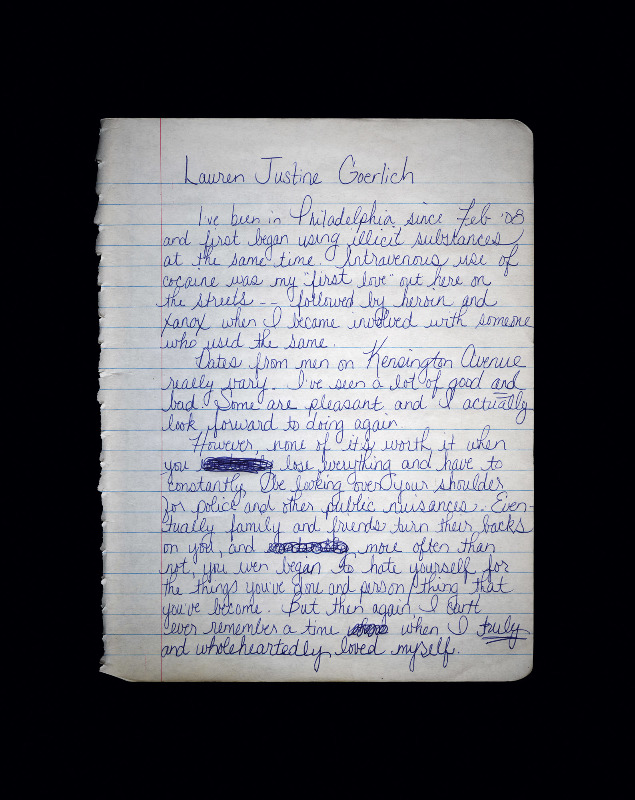 Lauren Justine Goerlich
I've been in Philadelphia since Feb '08
and first began using illicit substances
at the same time. Intravenous use of
cocaine was my "first love" out here on
the streets -- followed by heroin and
xanax when I became involved with someone
who used the same.
Dates from men on Kensington Avenue
really vary. I've seen a lot of good and
bad. Some are pleasant and I actually
look forward to doing again.
However, none of it's worth it when
you lose everything and have to
constantly be looking over your shoulder
for police and other public nuisances. Even-
tually family and friends turn their backs
on you, and more often than
not, you even began to hate yourself for
the things you've done and person/thing that
you've become. But then again I can't
ever remember a time when I truly
and wholeheartedly loved myself.